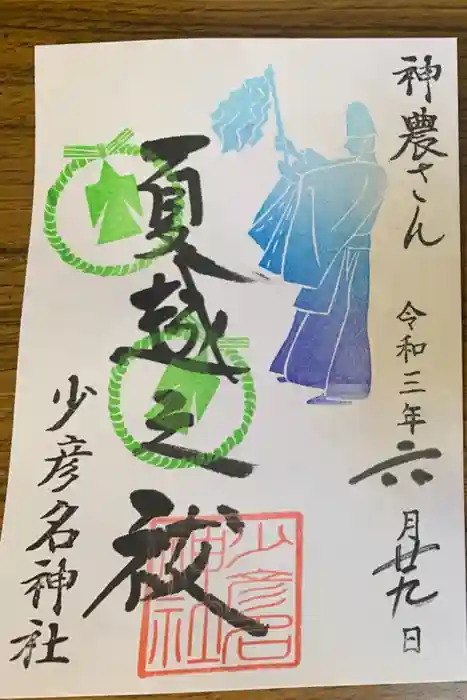 神農さん
令和三年六月廿九日
夏越之祓
少彦名神社
少彦名
神社